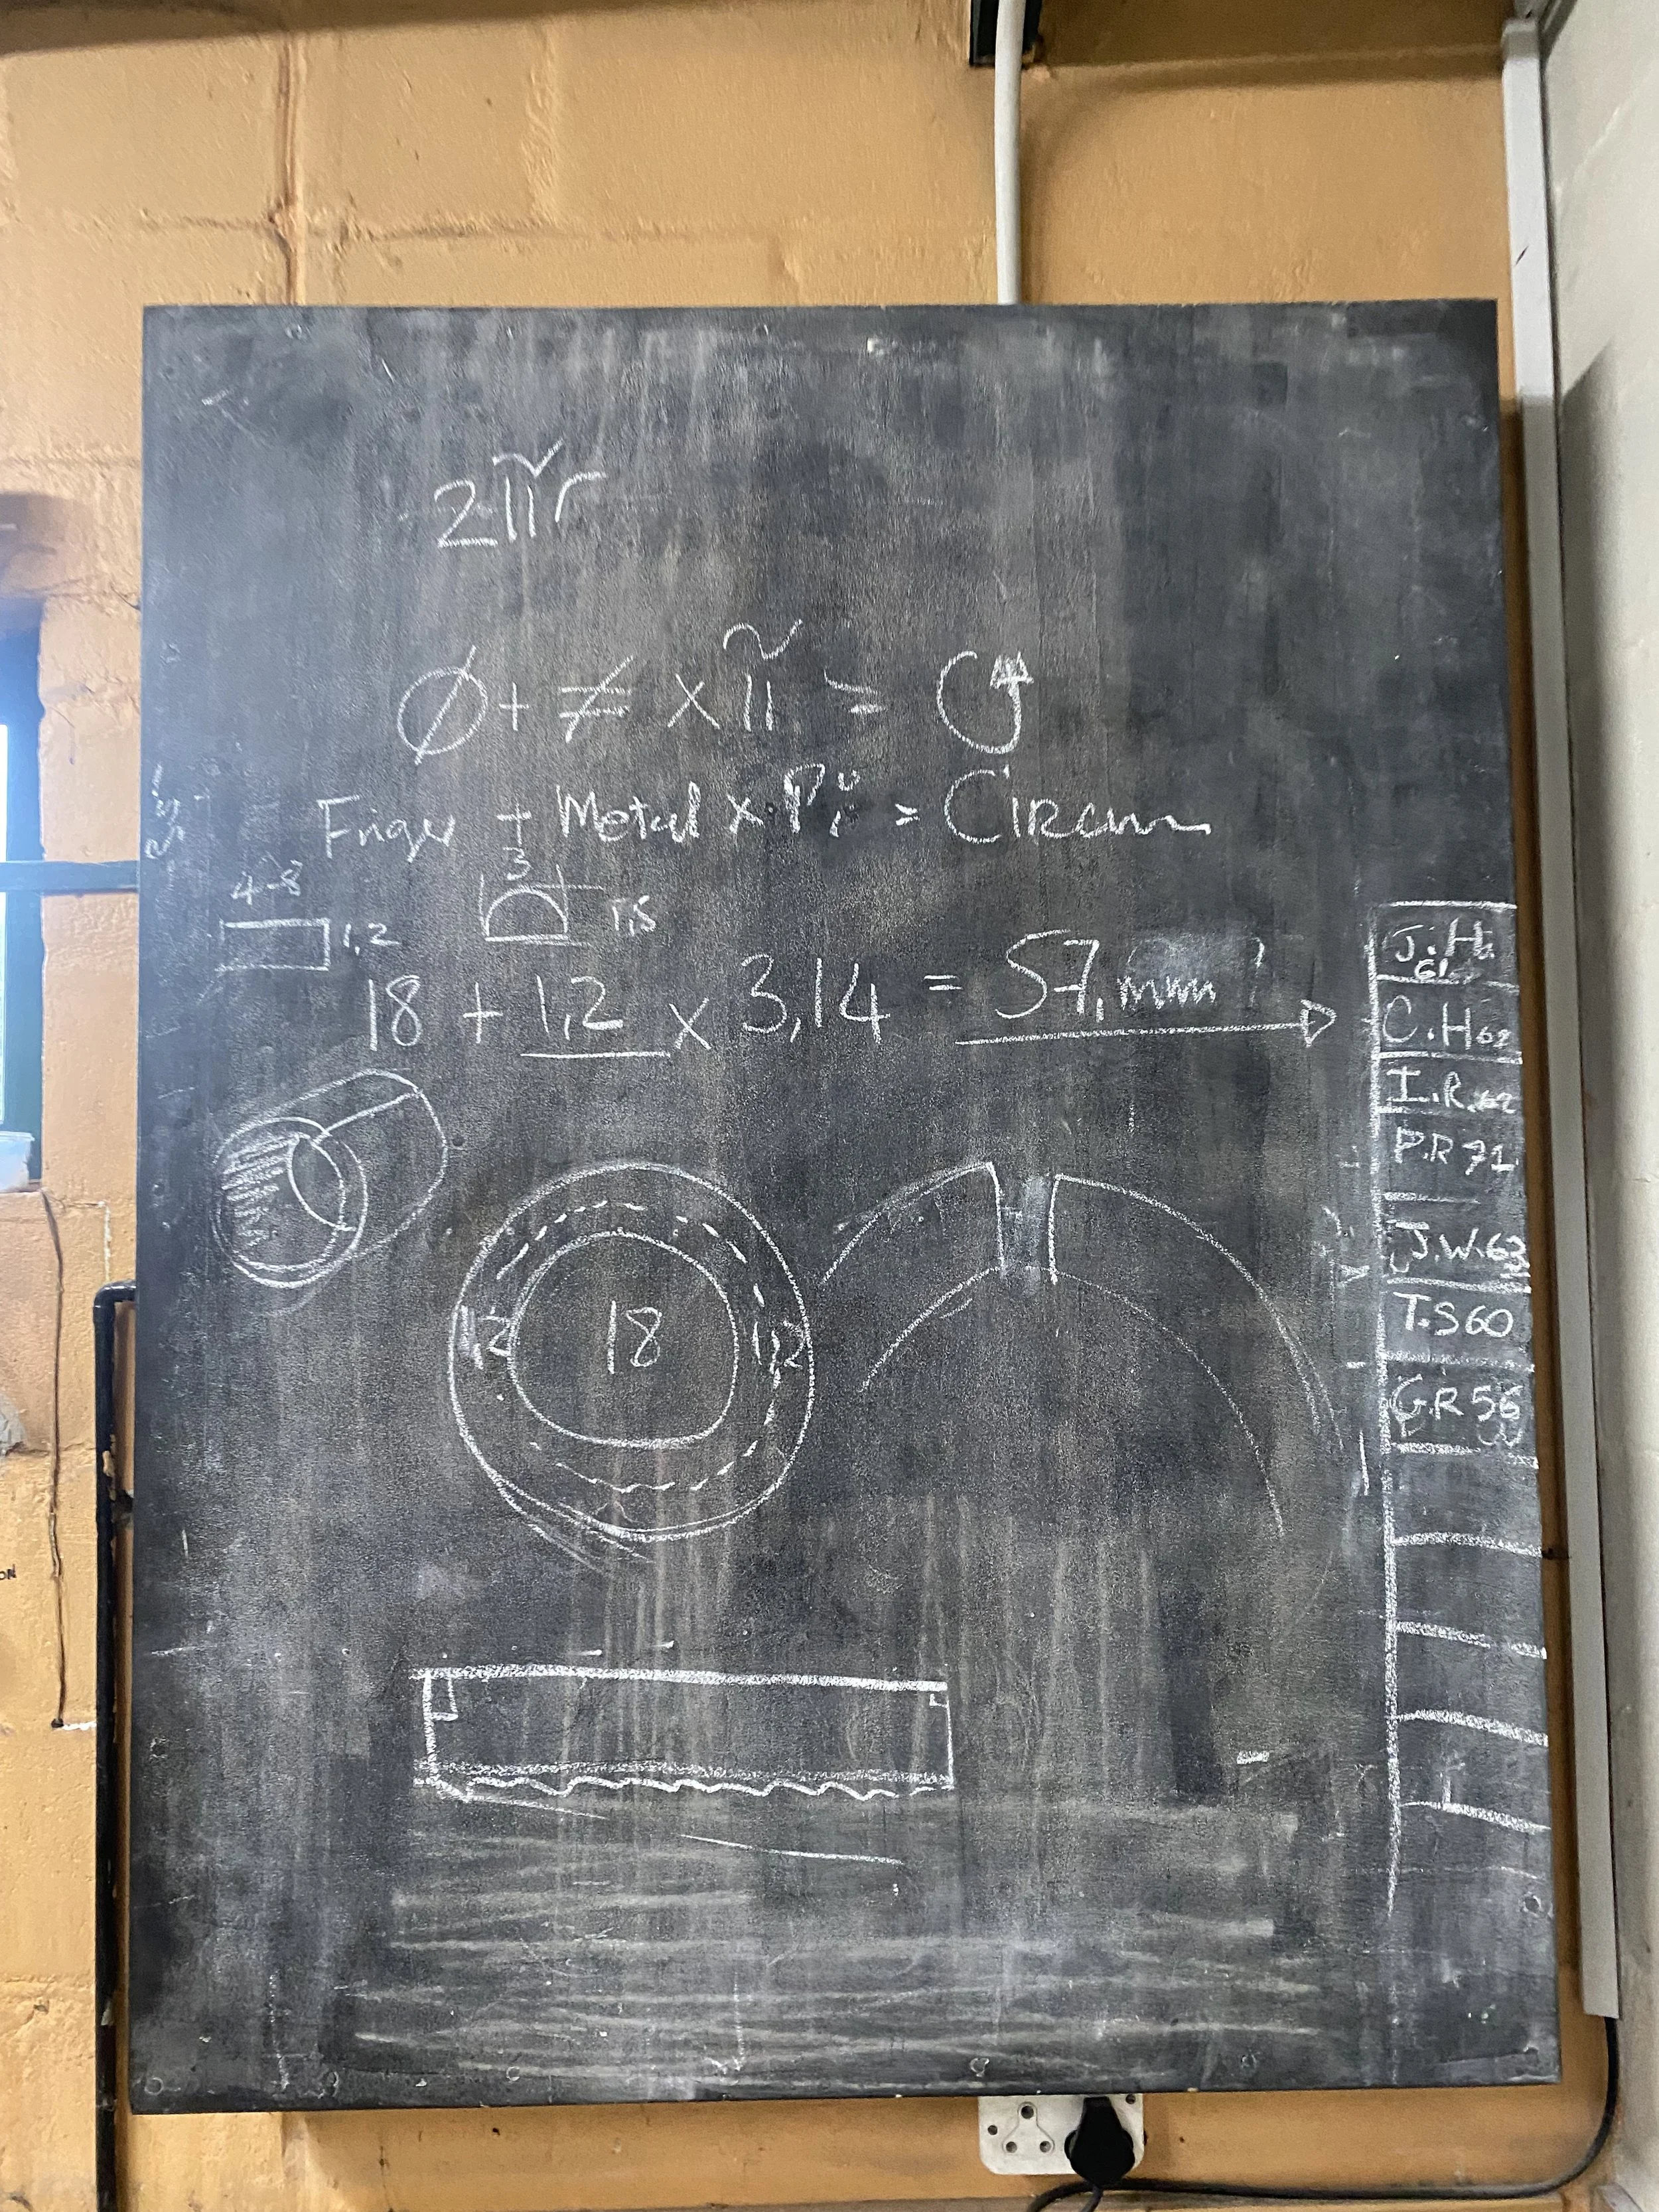 2πr
Ø + ≠ x π =
Finger + Metal x Pi = Circum
4-8
3
1,2
1,5
18 + 1,2 x 3,14 = 57,mm
1,2 18 1,2
J.H
61
C.H 62
I.R. 62
P.R 71
J.W. 63
T.S 60
G.R 56